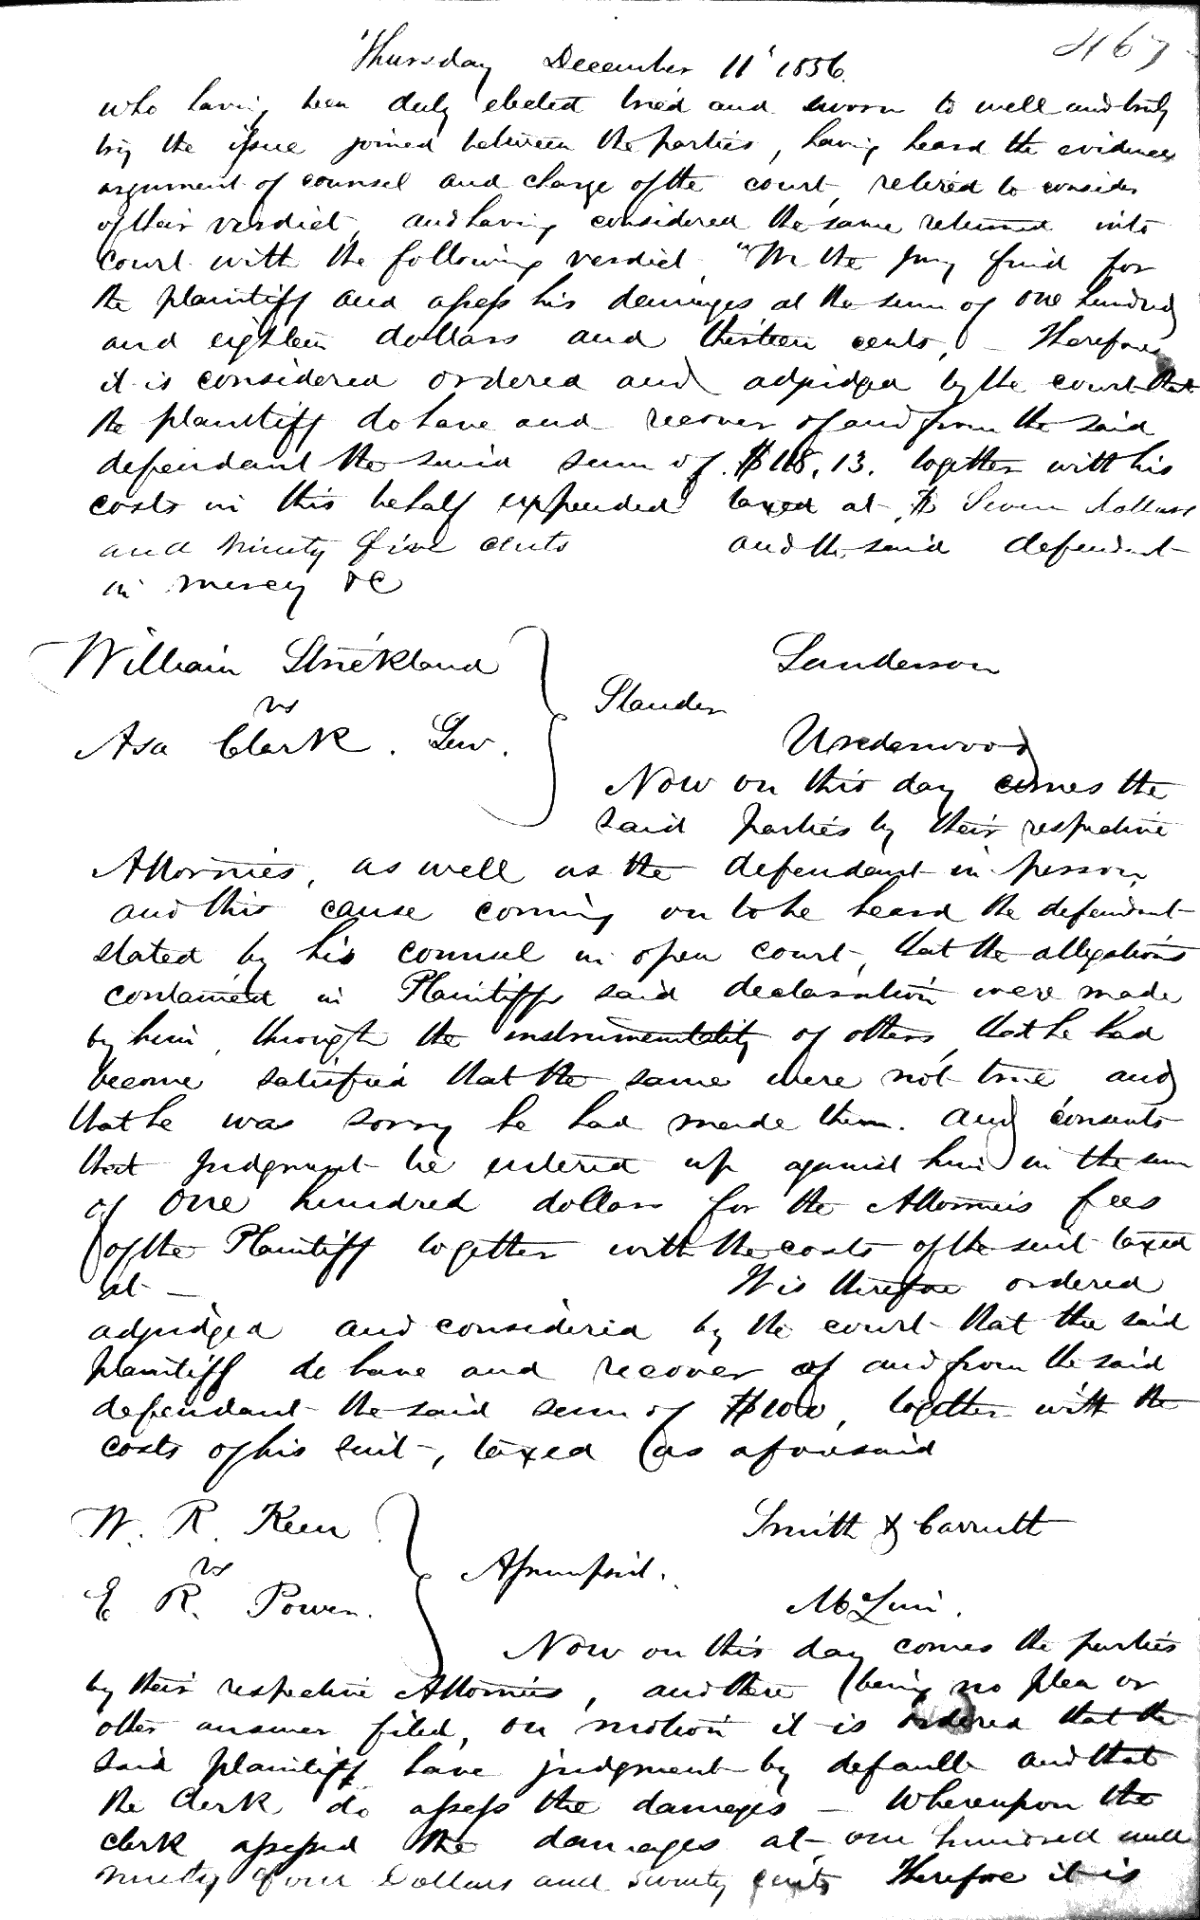 467
Thursday December 11' 1856.
who having been duly elected tried and sworn to well and truly
try the issue joined between the parties, having heard the evidence
argument of counsel and charge of the court, retired to consider
of their verdict, and having considered the same returned into
court with the following verdict, "We the jury find for
the plaintiff and assess his damages at the sum of one hundred
and eighteen dollars and thirteen cents, - Therefore
it is considered ordered and adjudged by the court that
the plaintiff do have and recover of and from the said
defendant the said sum of $118.13. together with his
costs in this behalf expended taxed at $ Seven dollars
and ninety five cents and the said defendant
in mercy &c
William Strickland Sanderson
vs Slander
Asa Clark. Senr. Underwood
Now on this day comes the
said parties by their respective
Attornies, as well as the defendant in person,
and this cause coming on to be heard the defendant
stated by his counsel in open court, that the allegations
contained in Plaintiffs said declaration were made
by him, through the instrumentality of others, that he had
become satisfied that the same were not true and
that he was sorry he had made them. And consents
that judgment be entered up against him in the sum
of One hundred dollars for the Attornies fees
of the Plaintiff together with the costs of the suit taxed
at - It is therefore ordered
adjudged and considered by the court that the said
plaintiff do have and recover of and from the said
defendant the said sum of $100, together with the
costs of his suit, taxed as aforesaid
W. R. Keen Smith & Carruth
vs Assumpsit.
E R. Power. McLin.
Now on this day comes the parties
by their respective Attornies, and there being no plea or
other answer filed, on motion it is ordered that the
said plaintiff have judgment by default and that
the Clerk do assess the damages - Whereupon the
clerk assessed the damages at one hundred and
ninety four Dollars and twenty cents Therefore it is